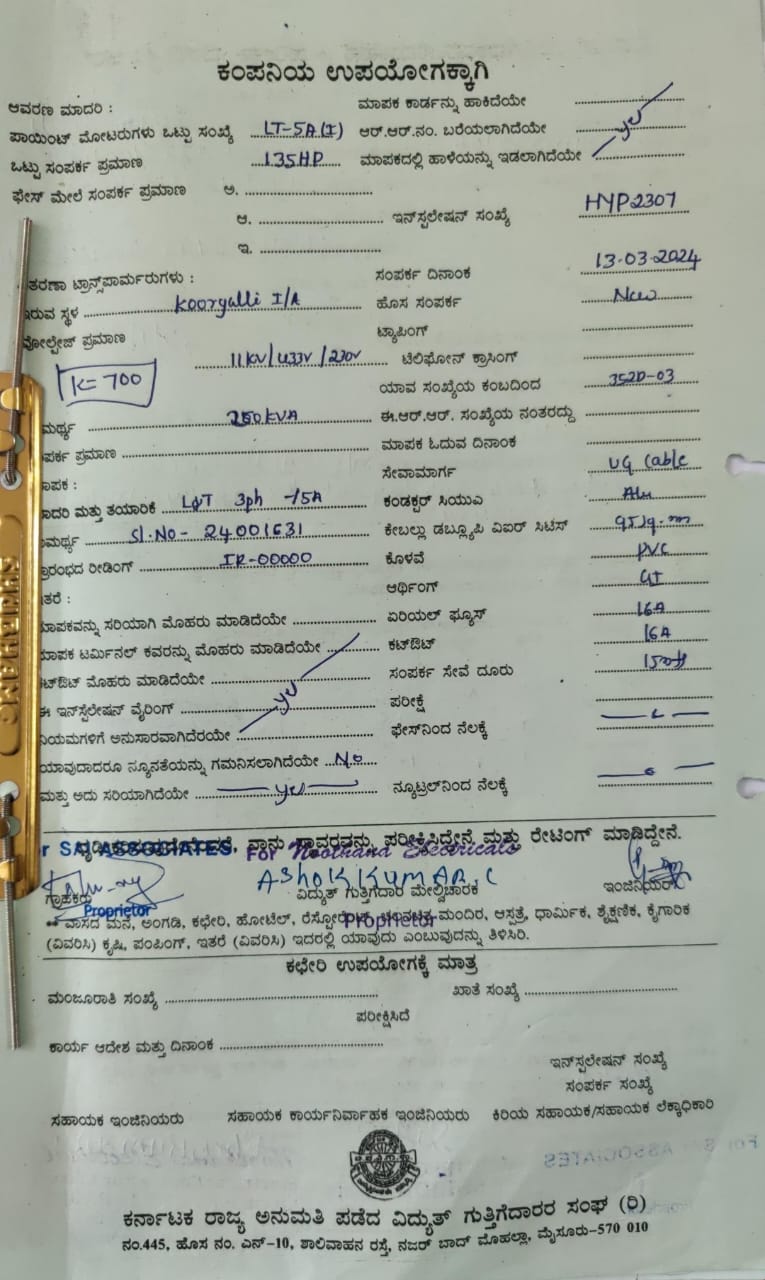 ಕಂಪನಿಯ ಉಪಯೋಗಕ್ಕಾಗಿ
ಆವರಣ ಮಾದರಿ : ಮಾಪಕ ಕಾರ್ಡನ್ನು ಹಾಕಿದೆಯೇ
ಪಾಯಿಂಟ್ ಮೋಟರುಗಳು ಒಟ್ಟು ಸಂಖ್ಯೆ LT-5A(I) ಆರ್.ಆರ್.ನಂ. ಬರೆಯಲಾಗಿದೆಯೇ yes
ಒಟ್ಟು ಸಂಪರ್ಕ ಪ್ರಮಾಣ 135HP ಮಾಪಕದಲ್ಲಿ ಹಾಳೆಯನ್ನು ಇಡಲಾಗಿದೆಯೇ
ಫೇಸ್ ಮೇಲೆ ಸಂಪರ್ಕ ಪ್ರಮಾಣ ಅ.
ಆ. ಇನ್‌ಸ್ಟಲೇಷನ್ ಸಂಖ್ಯೆ HYP2307
ಇ.
ತರಣಾ ಟ್ರಾನ್ಸ್‌ಫಾರ್ಮರುಗಳು : ಸಂಪರ್ಕ ದಿನಾಂಕ 13-03-2024
ಇರುವ ಸ್ಥಳ Koorgalli I/A ಹೊಸ ಸಂಪರ್ಕ New
ವೋಲ್ಟೇಜ್ ಪ್ರಮಾಣ ಟ್ಯಾಪಿಂಗ್
11KV/433V/230V ಟೆಲಿಫೋನ್ ಕ್ರಾಸಿಂಗ್
K=700 ಯಾವ ಸಂಖ್ಯೆಯ ಕಂಬದಿಂದ 352D-03
ಮರ್ಥ್ಯ 250KVA ಈ.ಆರ್.ಆರ್. ಸಂಖ್ಯೆಯ ನಂತರದ್ದು
ಪರ್ಕ ಪ್ರಮಾಣ ಮಾಪಕ ಓದುವ ದಿನಾಂಕ
ಾಪಕ : ಸೇವಾಮಾರ್ಗ UG Cable
ಾದರಿ ಮತ್ತು ತಯಾರಿಕೆ L&T 3ph -/5A ಕಂಡಕ್ಟರ್ ಸಿಯುಎ Alu
ಮರ್ಥ್ಯ Sl.No- 24001631 ಕೇಬಲ್ಲು ಡಬ್ಲ್ಯೂಪಿ ವಿಐರ್ ಸಿಟಿಸ್
ಾರಂಭದ ರೀಡಿಂಗ್ IR-00000 ಕೊಳವೆ PVC
ತರೆ : ಆರ್ಥಿಂಗ್ GI
ಾಪಕವನ್ನು ಸರಿಯಾಗಿ ಮೊಹರು ಮಾಡಿದೆಯೇ ಏರಿಯಲ್ ಫ್ಯೂಸ್ 16A
ಾಪಕ ಟರ್ಮಿನಲ್ ಕವರನ್ನು ಮೊಹರು ಮಾಡಿದೆಯೇ ಕಟ್ಔಟ್ 16A
ಟ್ಔಟ್ ಮೊಹರು ಮಾಡಿದೆಯೇ ಸಂಪರ್ಕ ಸೇವೆ ದೂರು
ಈ ಇನ್‌ಸ್ಟಲೇಷನ್ ವೈರಿಂಗ್ yes ಪರೀಕ್ಷೆ
ನಿಯಮಗಳಿಗೆ ಅನುಸಾರವಾಗಿದೆರಯೇ ಫೇಸ್‌ನಿಂದ ನೆಲಕ್ಕೆ
ಯಾವುದಾದರೂ ನ್ಯೂನತೆಯನ್ನು ಗಮನಿಸಲಾಗಿದೆಯೇ No
ಮತ್ತು ಅದು ಸರಿಯಾಗಿದೆಯೇ yes ನ್ಯೂಟ್ರಲ್‌ನಿಂದ ನೆಲಕ್ಕೆ
ನಾನು ಸ್ಥಾವರವನ್ನು ಪರೀಕ್ಷಿಸಿದ್ದೇನೆ ಮತ್ತು ರೇಟಿಂಗ್ ಮಾಡಿದ್ದೇನೆ.
r SAI ASSOCIATES For Noothana Electricals
ASHOK KUMAR.C
ಗ್ರಾಹಕರು ವಿದ್ಯುತ್ ಗುತ್ತಿಗೆದಾರ ಮೇಲ್ವಿಚಾರಕ ಇಂಜಿನಿಯರ್
Proprietor Proprietor
** ವಾಸದ ಮನೆ, ಅಂಗಡಿ, ಕಛೇರಿ, ಹೋಟೆಲ್, ರೆಸ್ಟೋರೆಂಟ್, ಚಲನಚಿತ್ರ ಮಂದಿರ, ಆಸ್ಪತ್ರೆ, ಧಾರ್ಮಿಕ, ಶೈಕ್ಷಣಿಕ, ಕೈಗಾರಿಕ
(ವಿವರಿಸಿ) ಕೃಷಿ, ಪಂಪಿಂಗ್, ಇತರೆ (ವಿವರಿಸಿ) ಇದರಲ್ಲಿ ಯಾವುದು ಎಂಬುವುದನ್ನು ತಿಳಿಸಿರಿ.
ಕಛೇರಿ ಉಪಯೋಗಕ್ಕೆ ಮಾತ್ರ
ಮಂಜೂರಾತಿ ಸಂಖ್ಯೆ ಖಾತೆ ಸಂಖ್ಯೆ
ಪರೀಕ್ಷಿಸಿದೆ
ಕಾರ್ಯ ಆದೇಶ ಮತ್ತು ದಿನಾಂಕ
ಇನ್‌ಸ್ಟಲೇಷನ್ ಸಂಖ್ಯೆ
ಸಂಪರ್ಕ ಸಂಖ್ಯೆ
ಸಹಾಯಕ ಇಂಜಿನಿಯರು ಸಹಾಯಕ ಕಾರ್ಯನಿರ್ವಾಹಕ ಇಂಜಿನಿಯರು ಕಿರಿಯ ಸಹಾಯಕ/ಸಹಾಯಕ ಲೆಕ್ಕಾಧಿಕಾರಿ
ಕರ್ನಾಟಕ ರಾಜ್ಯ ಅನುಮತಿ ಪಡೆದ ವಿದ್ಯುತ್ ಗುತ್ತಿಗೆದಾರರ ಸಂಘ (ರಿ)
ನಂ.445, ಹೊಸ ನಂ. ಎನ್-10, ಶಾಲಿವಾಹನ ರಸ್ತೆ, ನಜರ್ ಬಾದ್ ಮೊಹಲ್ಲಾ, ಮೈಸೂರು-570 010